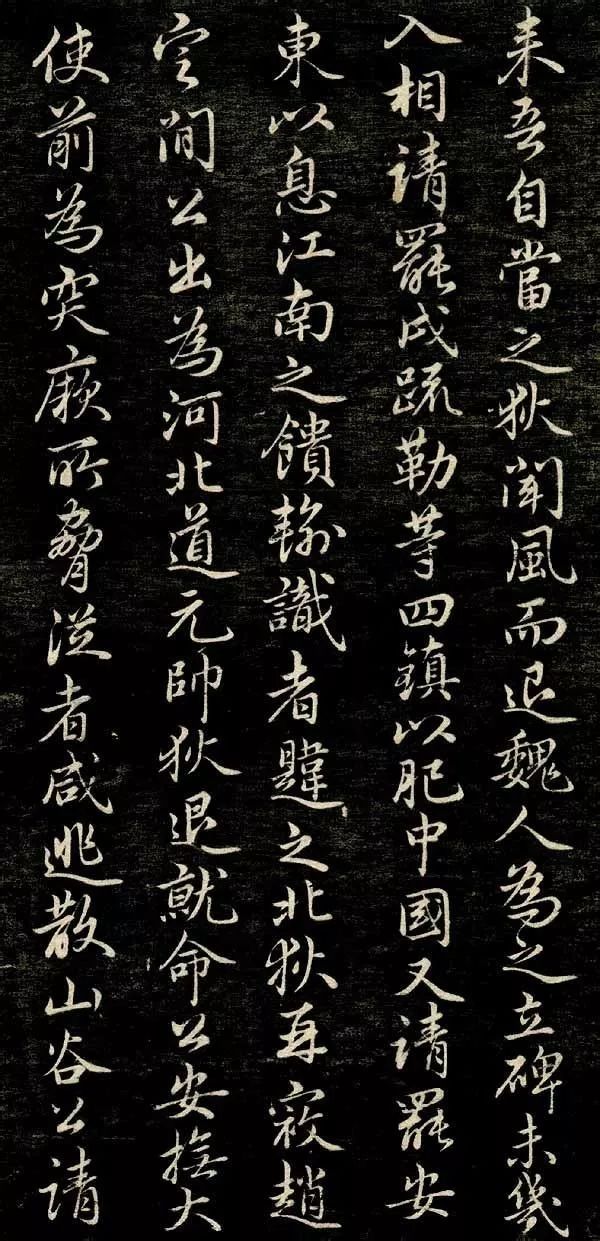 来吾自當之狄聞風而退魏人為之立碑未幾
入相請罷戍疏勒等四鎮以肥中國又請罷安
東以息江南之饋輸識者韙之北狄再寇趙
定間公出為河北道元帥狄退就命公安撫大
使前為突厥所脅從者咸逃散山谷公請